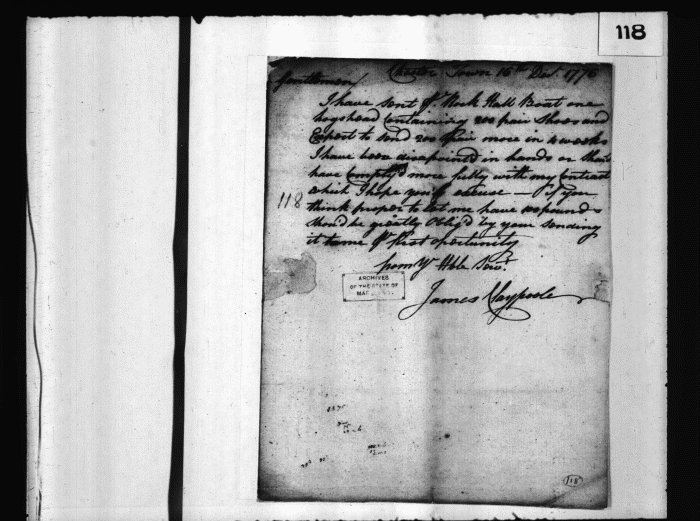 118
Chester Town 16th Decr. 1776
Gentlemen
I have sent pr. Rock Hall Boat one
hogshead Containing 200 pair Shoes and
Expect to send 200 pair more in weeks
I have been disapointed in hands or shou'd
have Comply'd more fully with my Contract
which I hope you'll excuse — if you
think proper to let me have pounds
shou'd be greatly Oblig'd by your sending
it to me pr first opertunity
from Yr Hble Servt.
James Claypoole
118
ARCHIVES
OF THE STATE OF
MARYLAND
118